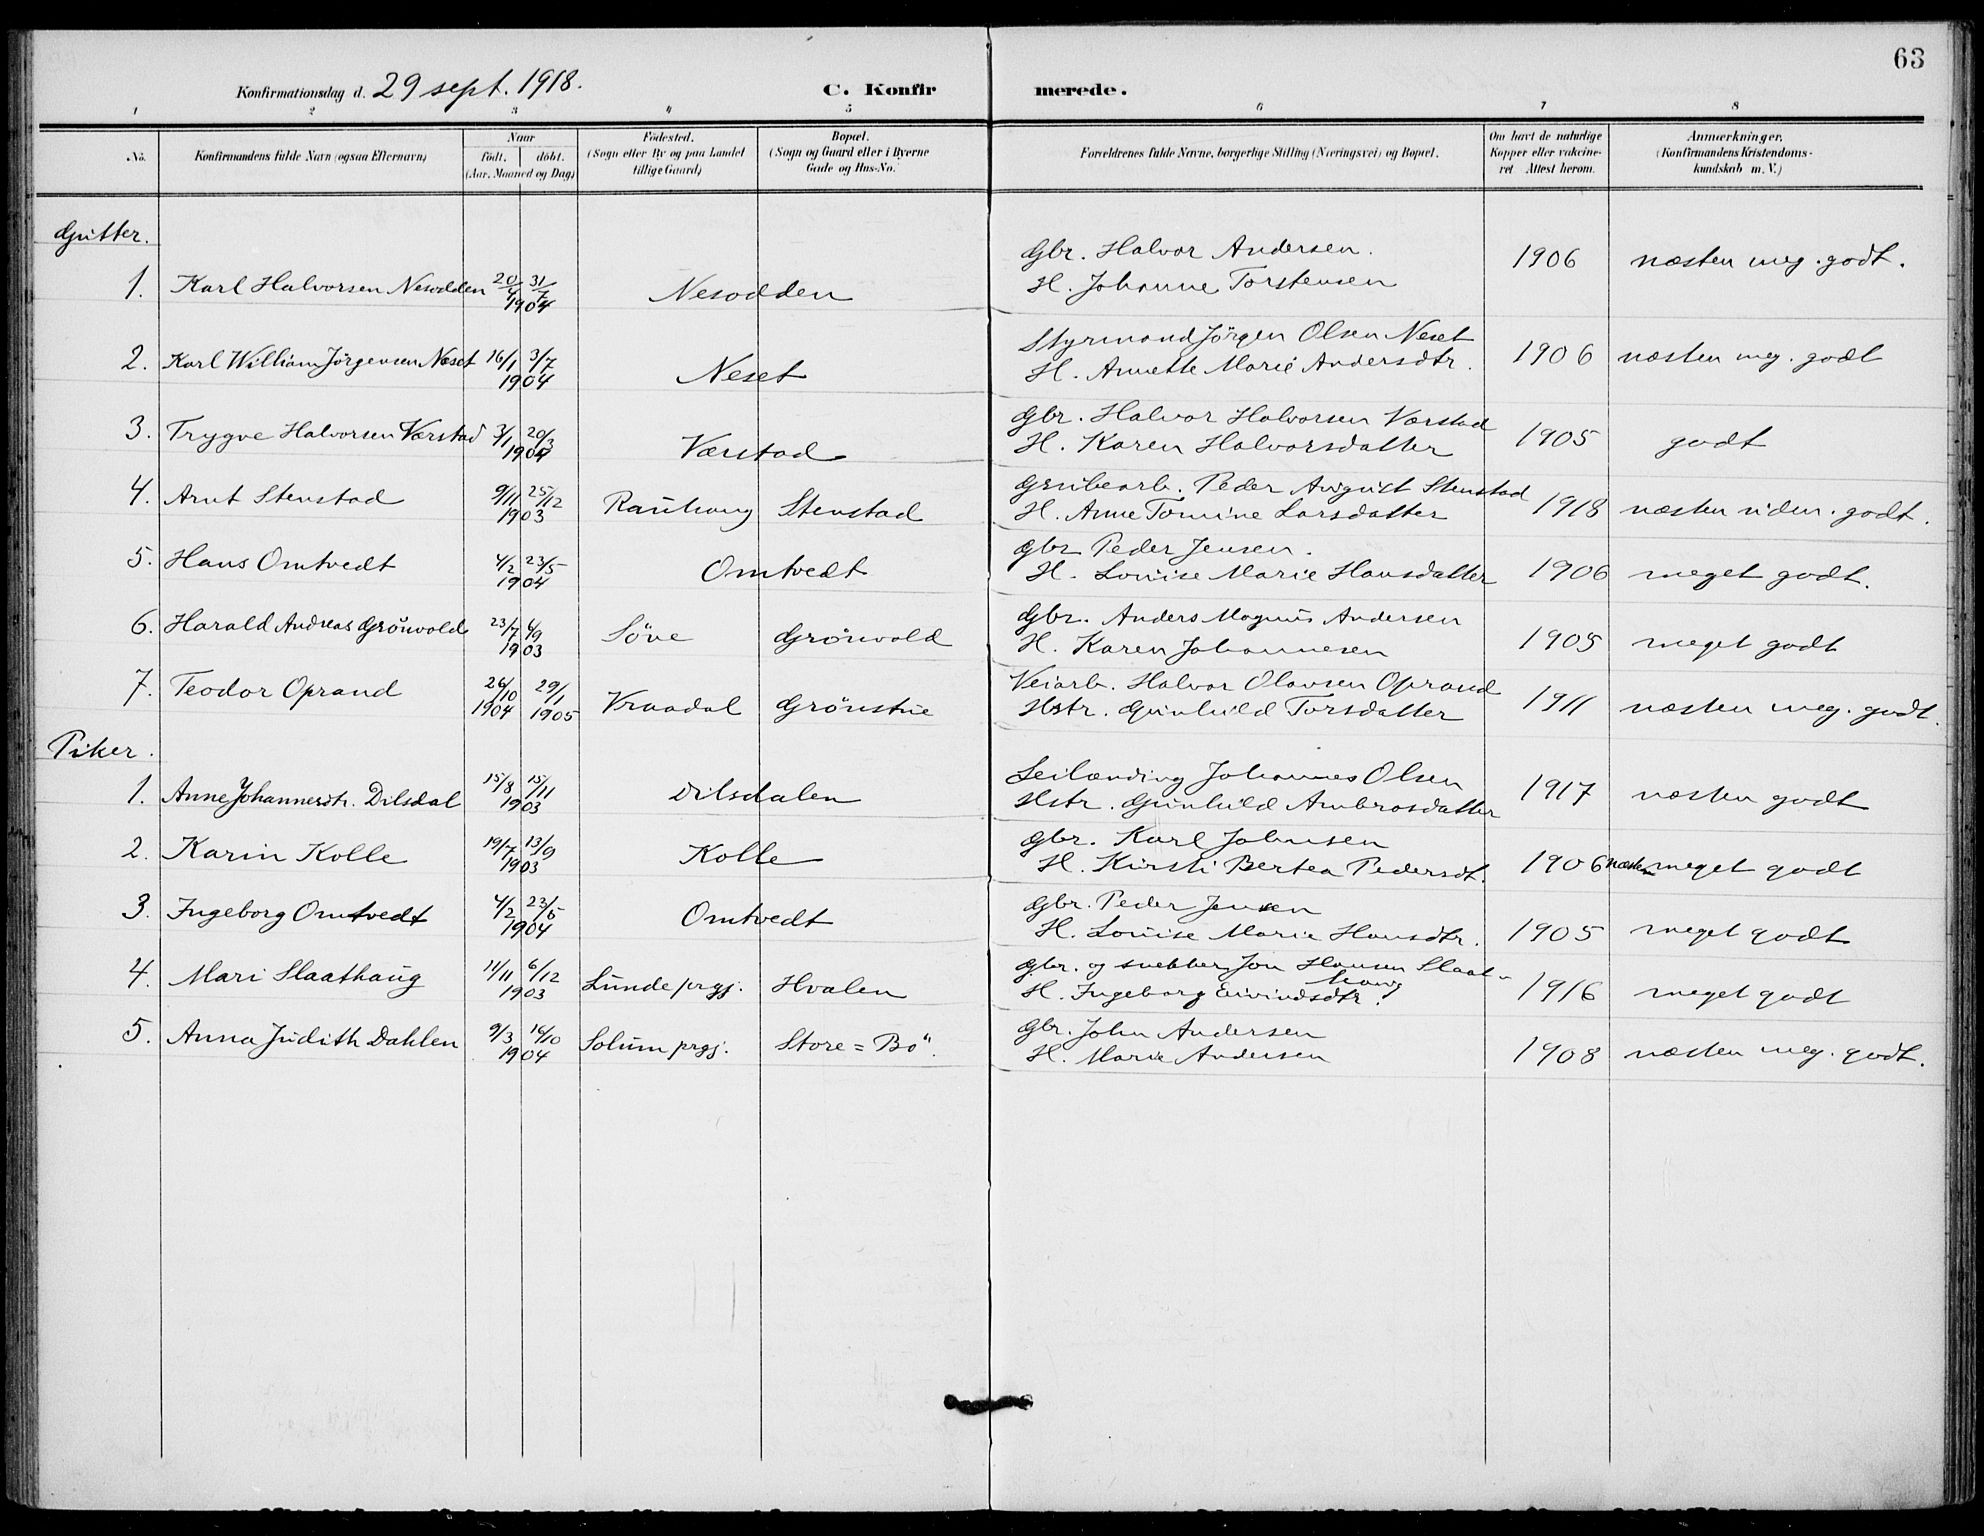 63
Konfirmationsdag d. 29 sept. 1918. C. Konfirmerede.
1 2 3 4 5 6 7 8
No. Konfirmandens fulde Navn (ogsaa Efternavn) Naar födt. döbt. (Aar, Maaned og Dag) Födested. (Sogn eller By og paa Landet tillige Gaard) Bopæl. (Sogn og Gaard eller i Byerne Gade og Hus-No. Forældrenes fulde Navne, borgerlige Stilling (Næringsvei) og Bopæl. Om havt de naturlige Kopper eller vakcineret Attest herom. Anmærkninger. (Konfirmandens Kristendomskundskab m. V.)
Gutter.
1. Karl Halvorsen Nesodden 20/4 31/7 1904 Nesodden Gbr. Halvor Andersen. H. Johanne Torstensen 1906 næsten meg. godt.
2. Karl William Jørgensen Næset 16/1 3/7 1904 Neset Styrmand Jörgen Olsen Neset H. Annette Marie Andersdtr. 1906 næsten meg. godt
3. Trygve Halvorsen Værstad 3/1 20/3 1904 Værstad Gbr. Halvor Halvorsen Værstad H. Karen Halvorsdatter 1905 godt
4. Arnt Stenstad 9/11 25/12 1903 Rauhaug Stenstad Grubearb. Peder August Stenstad H. Anne Tomine Larsdatter 1918 næsten uden. godt.
5. Hans Omtvedt 4/2 23/5 1904 Omtvedt Gbr Peder Jensen. H. Louise Marie Hansdatter 1906 meget godt.
6. Harald Andreas Grönvold 23/7 6/9 1903 Söve Grönvold Gbr. Anders Magnus Andersen H. Karen Johannesen 1905 meget godt
7. Teodor Oprand 26/10 1904 29/1 1905 Vraadal Grönstue Veiarb. Halvor Olavsen Oprand Hstr. Gunhild Torsdatter 1911 næsten meg. godt.
Piker.
1. Anne Johannesdtr. Dilsdal 15/8 15/11 1903 Dilsdalen Leilænding Johannes Olsen Hstr. Gunhild Ambrosdatter 1917 næsten godt
2. Karin Kolle 19/7 13/9 1903 Kolle Gbr. Karl Johnsen H. Kirsti Bertea Pedersdt. 1906 næsten meget godt
3. Ingeborg Omtvedt 4/2 23/5 1904 Omtvedt Gbr. Peder Jensen H. Louise Marie Hansdtr. 1905 meget godt
4. Mari Slaathaug 11/11 6/12 1903 Lunde prgj. Hvalen Gbr. og snekker Jon Hansen Slaathaug H. Ingeborg Eivindsdtr. 1916 meget godt
5. Anna Judith Dahlen 9/3 16/10 1904 Solum prgj. Store=Bö. Gbr. John Andersen H. Marie Andersen 1908 næsten meg. godt.